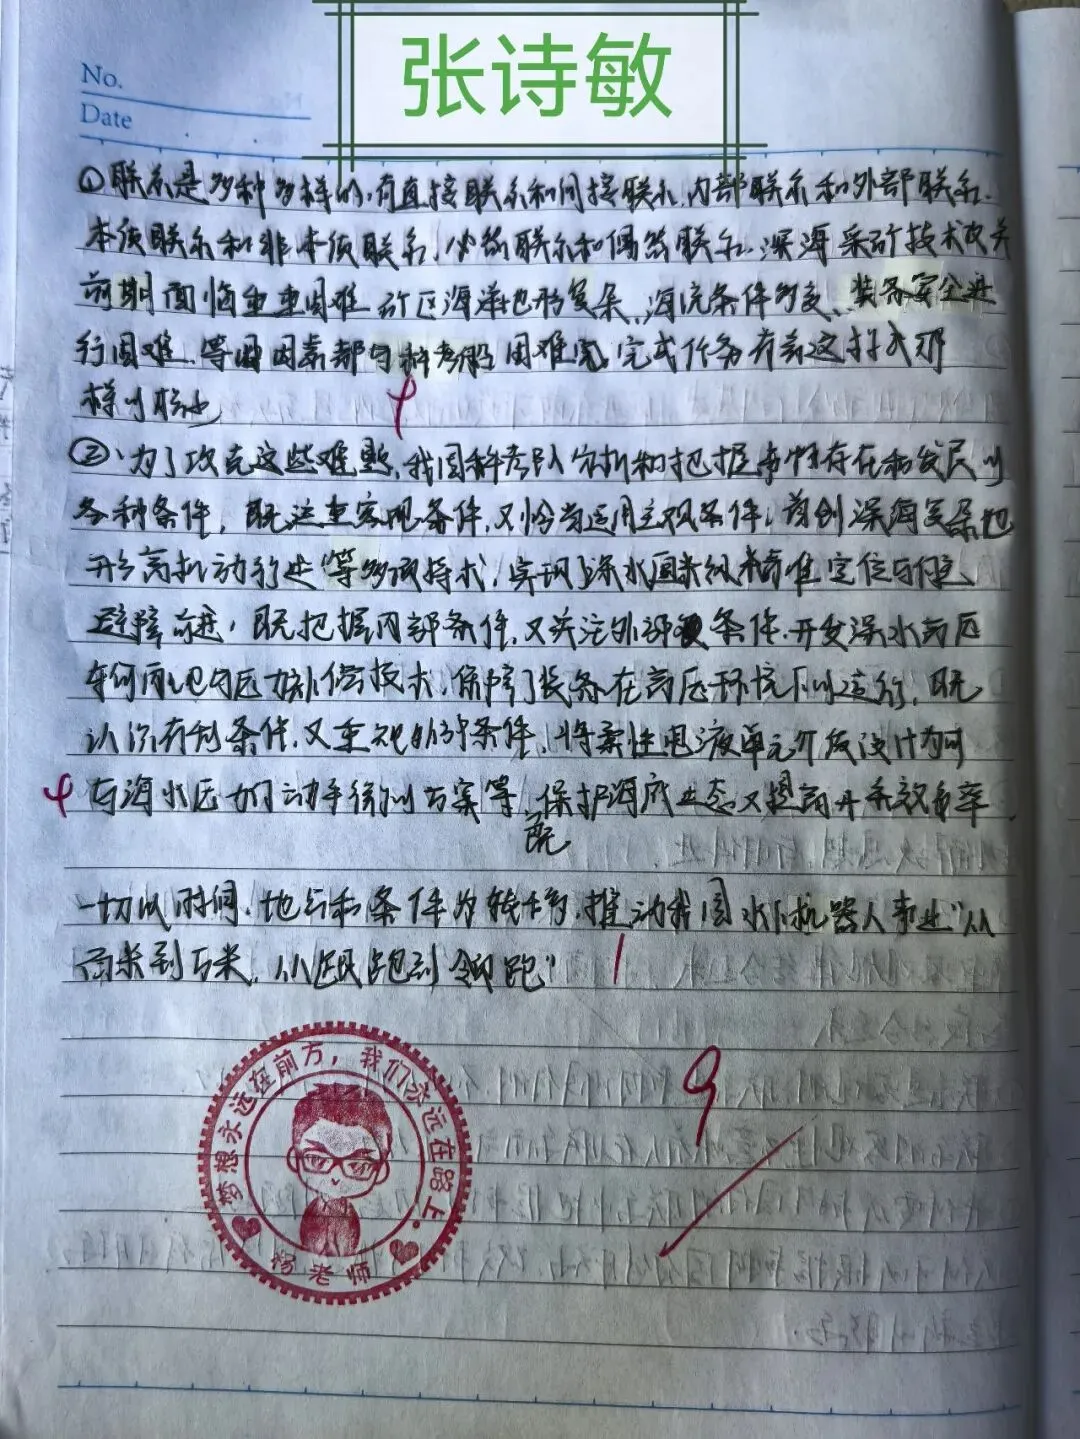 张诗敏
No.
Date
①联系是多种多样的,有直接联系和间接联系,内部联系和外部联系.
本质联系和非本质联系,必然联系和偶然联系.深海采矿技术攻关
前期面临重重困难 矿区海洋地形复杂、海流条件多变、装备安全进
行困难、等因素都与科考船 困难 完成任务有着这样或那
样的联系
②、为了攻克这些难题,我国科考队分析和把握事物存在和发展的
各种条件,既注重客观条件,又恰当运用主观条件,首创深海复杂地
形高机动行进等多项技术,实现了深水厘米级精准定位与
避障前进,既把握内部条件,又关注外部条件,开发深水高压
补偿技术,保障了装备在高压环境下的运行,既
认清有利条件,又重视外部条件,将柔性
与海水 方案等,保护海底生态又提高开采效率
既
一切以时间、地点和条件为转移,推动我国水下机器人事业“从
百米到万米,从跟跑到领跑”
9
梦想永远在前方,我们永远在路上.
杨老师